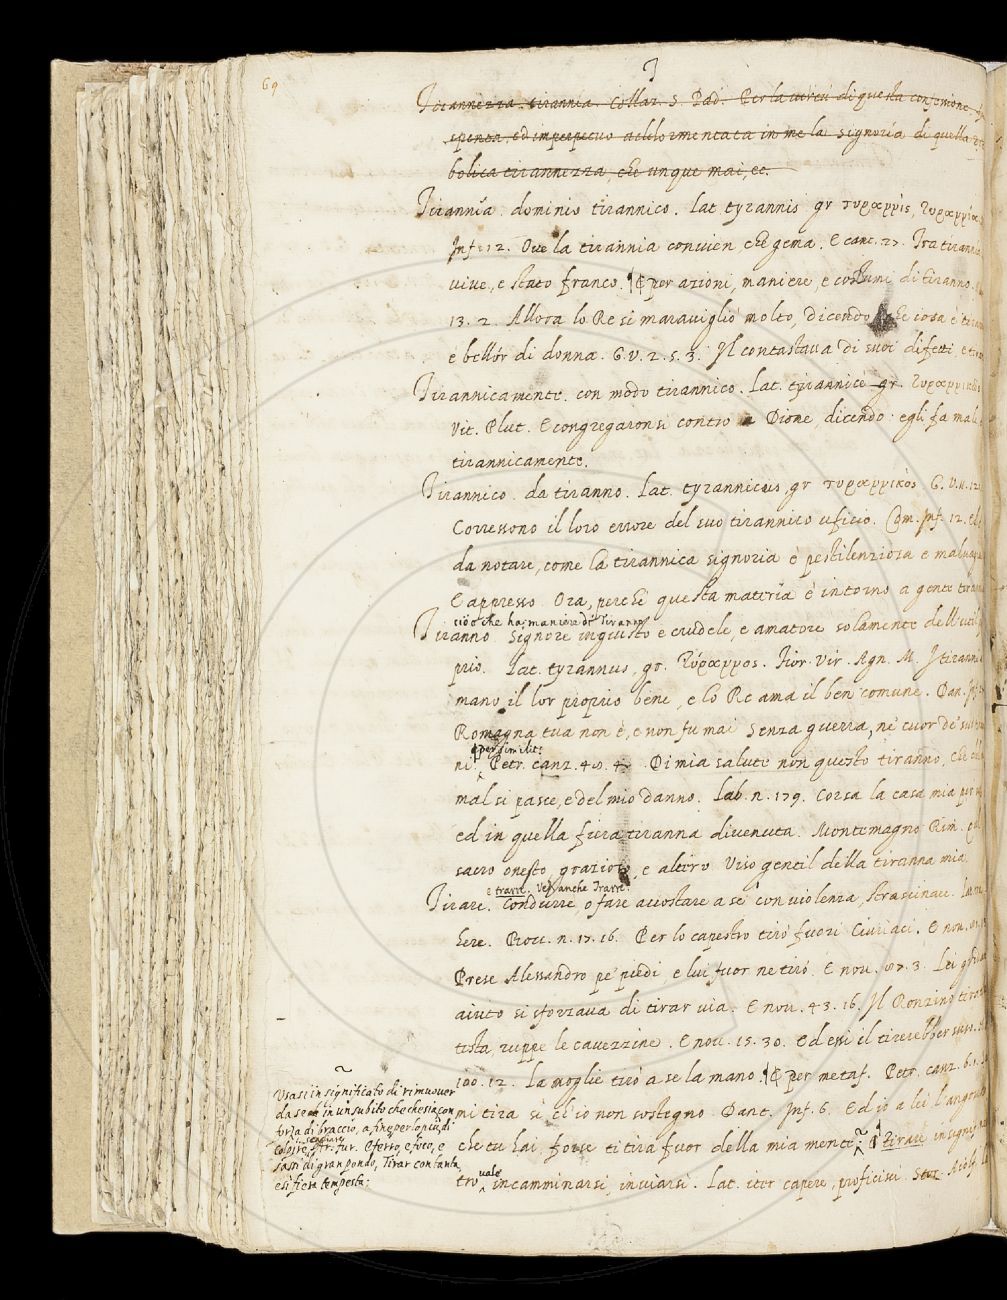 69
T
Tirannezza. tirannia. Collaz. S. Pad. Per la di questa confusione
spenta, ed imperpetuo addormentata in me la signoria di quella
bolica tirannezza, che unque mai, ec.
Tirannía. dominio tirannico. Lat. tyrannis gr τυραννίς, τυραννία
Inf. 12. Ove la tirannia convien che gema. E cant. 27. Tra tirannia
vive, e stato franco. ¶ per azioni, maniere, e costumi di tiranno.
13. 2. Allora lo Re si maravigliò molto, dicendo che cosa è
e bellór di donna. G.V. 2. 5. 3. Il contastava di suoi difetti, e
Tirannicamente. con modo tirannico. Lat. tyrannicè gr. τυραννικῶς
Vit. Plut. E congregaronsi contro a Dione, dicendo: egli fa male
tirannicamente.
Tirannico. da tiranno. Lat. tyrannicus, gr τυραννικὸς G.V. 11. 12
Corressono il loro errore del suo tirannico uficio. Com. Inf. 12.
da notare, come la tirannica signoria è pestilenziosa e malvagia
E appresso. Ora, perchè questa materia è intorno a gente
cioè che ha maniere di Tiranno
Tiranno. Signore ingiusto e crudele, e amatore solamente dell'util
prio. Lat. tyrannus, gr. τύραννος. Fior. Vir. Agn. M. I tiranni
mano il lor proprio bene, e lo Re ama il ben comune. Dan. Inf.
Romagna tua non è, e non fu mai Senza guerra, nè cuor de' suoi
¶ per similit:
ni. Petr. canz. 48. 4. Di mia salute non questo tiranno, che
mal si pasce, e del mio danno. Lab. n. 179. Corsa la casa mia per
ed in quella fiera tiranna divenuta. Montemagno Rim.
sacro onesto grazioso, e altero Viso gentil della tiranna mia.
e trarre. Ved. anche Trarre.
Tirare. Condurre, o fare accostare a sè con violenza, strascinare. Lat.
here. Bocc. n. 15. 16. Per lo capestro tirò fuori Ciuriaci. E nov.
Prese Alessandro pe' piedi, e lui fuor ne tirò. E nov. 3. Lei
aiuto si sforzava di tirar via. E nov. 43. 16. Il Ronzino
testa, ruppe le cavezzine. E nov. 15. 30. Ed essi il tirerebber suso.
100. 12. La moglie tirò a se la mano. ¶ per metaf. Petr. canz. 6.
mi tira sì ch'io non sostegno. Dant. Inf. 6. Ed io a lei l'angoscia
che tu hai, forse ti tira fuor della mia mente. ¶ tirare
tro vale incamminarsi, inviarsi. Lat. iter capere, proficisci
Usasi in significato di rimuover
da se in un subito che che sia con
forza di braccio, a fine per lo più di
colpire. scagliare. Arr. fur. E ferro, e foco, e
sassi di gran pondo, Tirar con tanta,
e sì fiera tempesta: